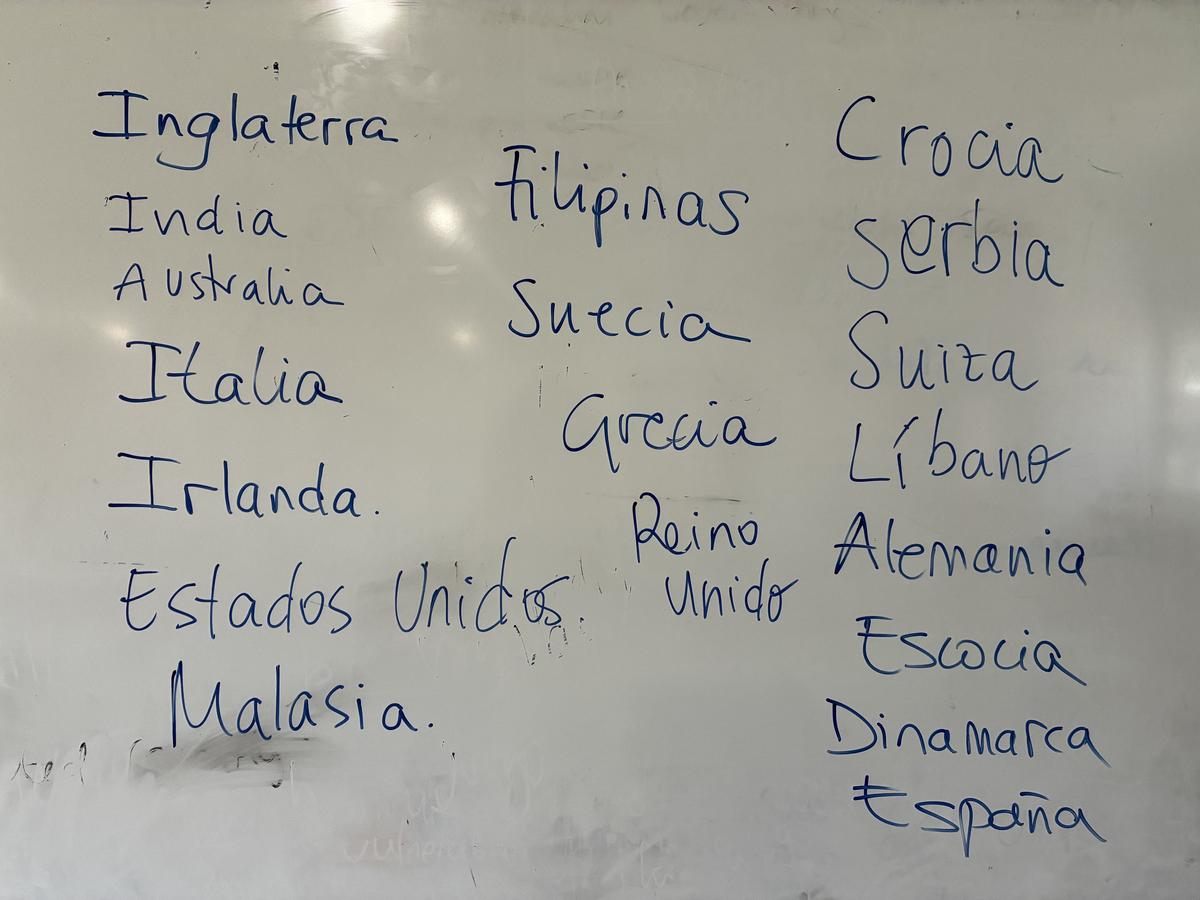 Inglaterra
India
Australia
Italia
Irlanda.
Estados Unidos
Malasia.
Filipinas
Suecia
Grecia
Reino
Unido
Crocia
Serbia
Suiza
Líbano
Alemania
Escocia
Dinamarca
España